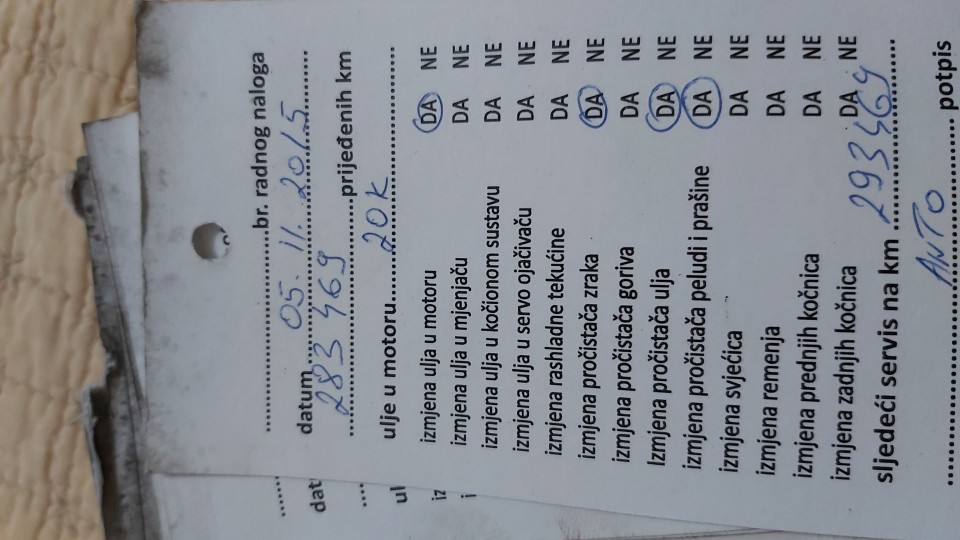 .......................................br. radnog naloga
datum.......05. 11. 2015........
283 469.......prijeđenih km
ulje u motoru.......20K.......................
izmjena ulja u motoru DA NE
izmjena ulja u mjenjaču DA NE
izmjena ulja u kočionom sustavu DA NE
izmjena ulja u servo ojačivaču DA NE
izmjena rashladne tekućine DA NE
izmjena pročistača zraka DA NE
izmjena pročistača goriva DA NE
Izmjena pročistača ulja DA NE
izmjena pročistača peludi i prašine DA NE
izmjena svjećica DA NE
izmjena remenja DA NE
izmjena prednjih kočnica DA NE
izmjena zadnjih kočnica DA NE
sljedeći servis na km 293469
ANTO
....................................... potpis
dat
ul
iz
i